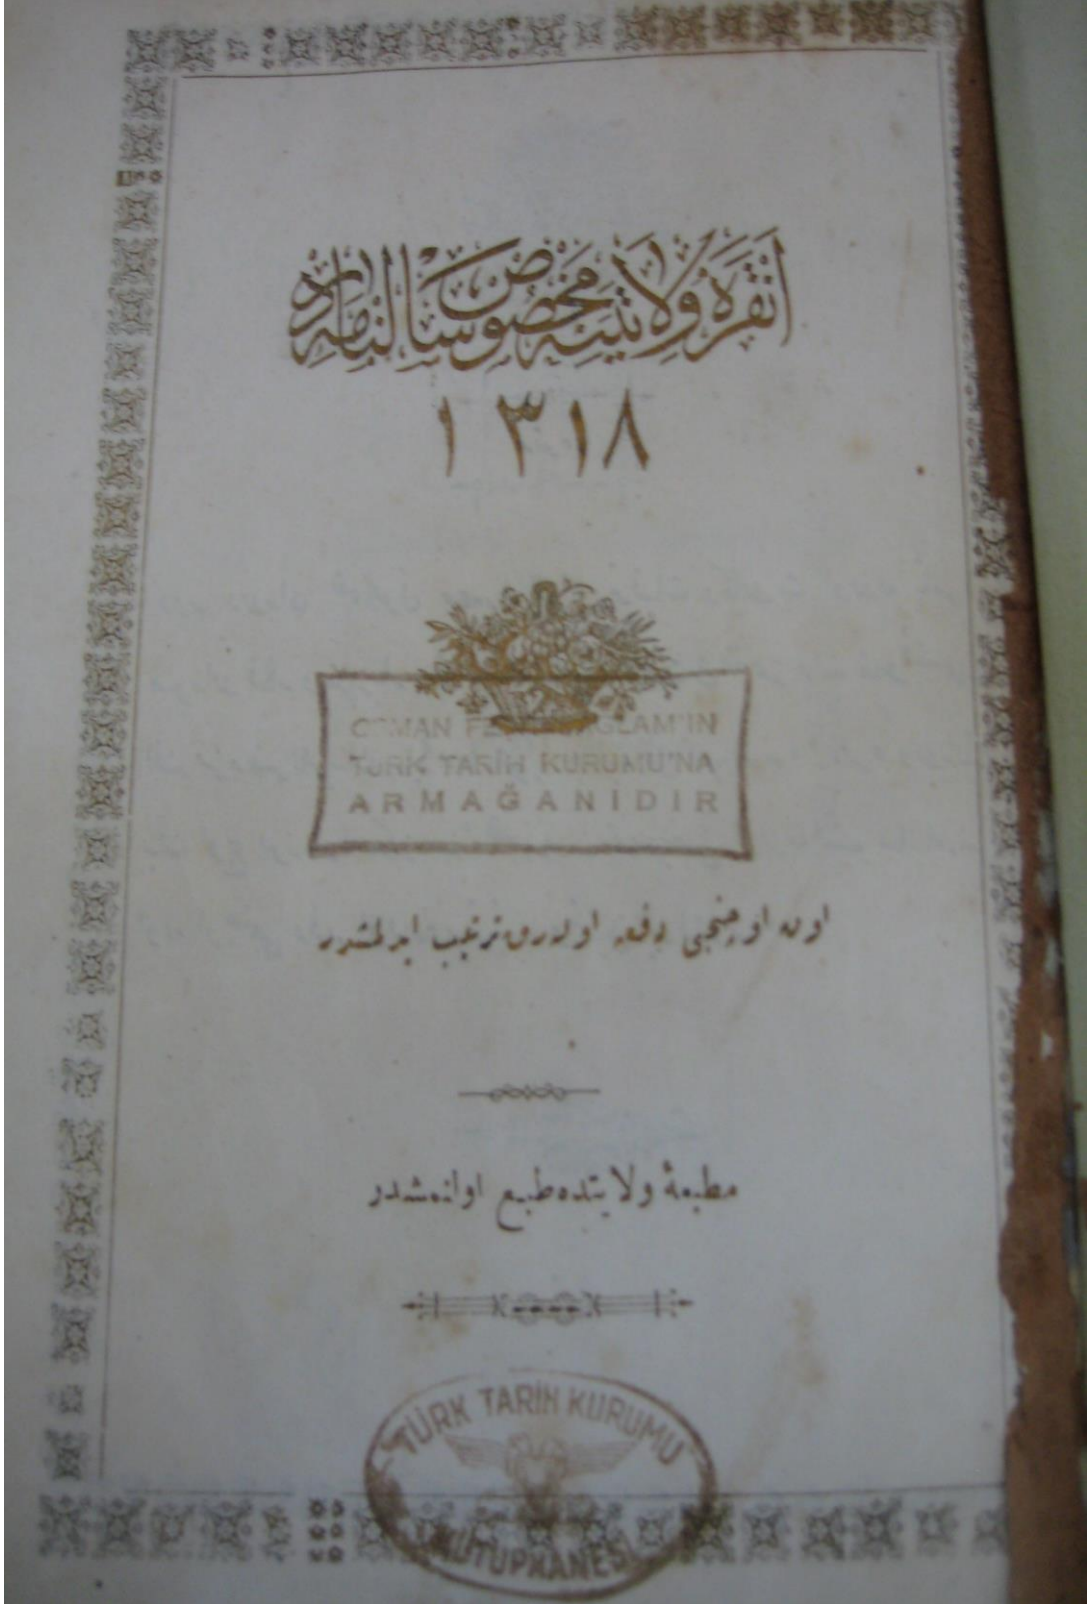 انقره ولايتينه مخصوص سالنامه در
١٣١٨
OSMAN FERİT SAĞLAM'IN
TÜRK TARİH KURUMU'NA
ARMAĞANIDIR
اون اوچنجی دفعه اوله رق ترتيب ايدلمشدر
مطبعۀ ولايتده طبع اولنمشدر
TÜRK TARİH KURUMU
KÜTÜPHANESİ